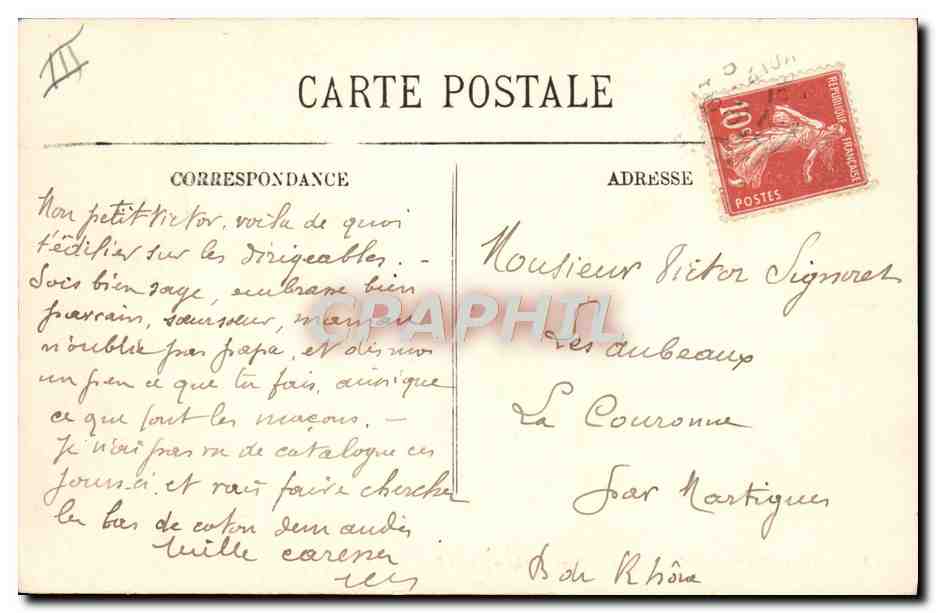 III
CARTE POSTALE
REPUBLIQUE FRANÇAISE
10
POSTES
CORRESPONDANCE
Mon petit Victor, voila de quoi
t'édifier sur les dirigeables. -
Sois bien sage, embrasse bien
parrain, soeursoeur, maman
n'oublie pas papa, et dis moi
un peu ce que tu fais, ainsi que
ce que font les maçons. -
Je n'ai pas vu de catalogue ces
jours-ci et vais faire chercher
les bas de coton demandés
Mille caresses
ADRESSE
Monsieur Victor Signoret
Les aubeaux
La Couronne
par Martigues
B du Rhône
CPAPHIL